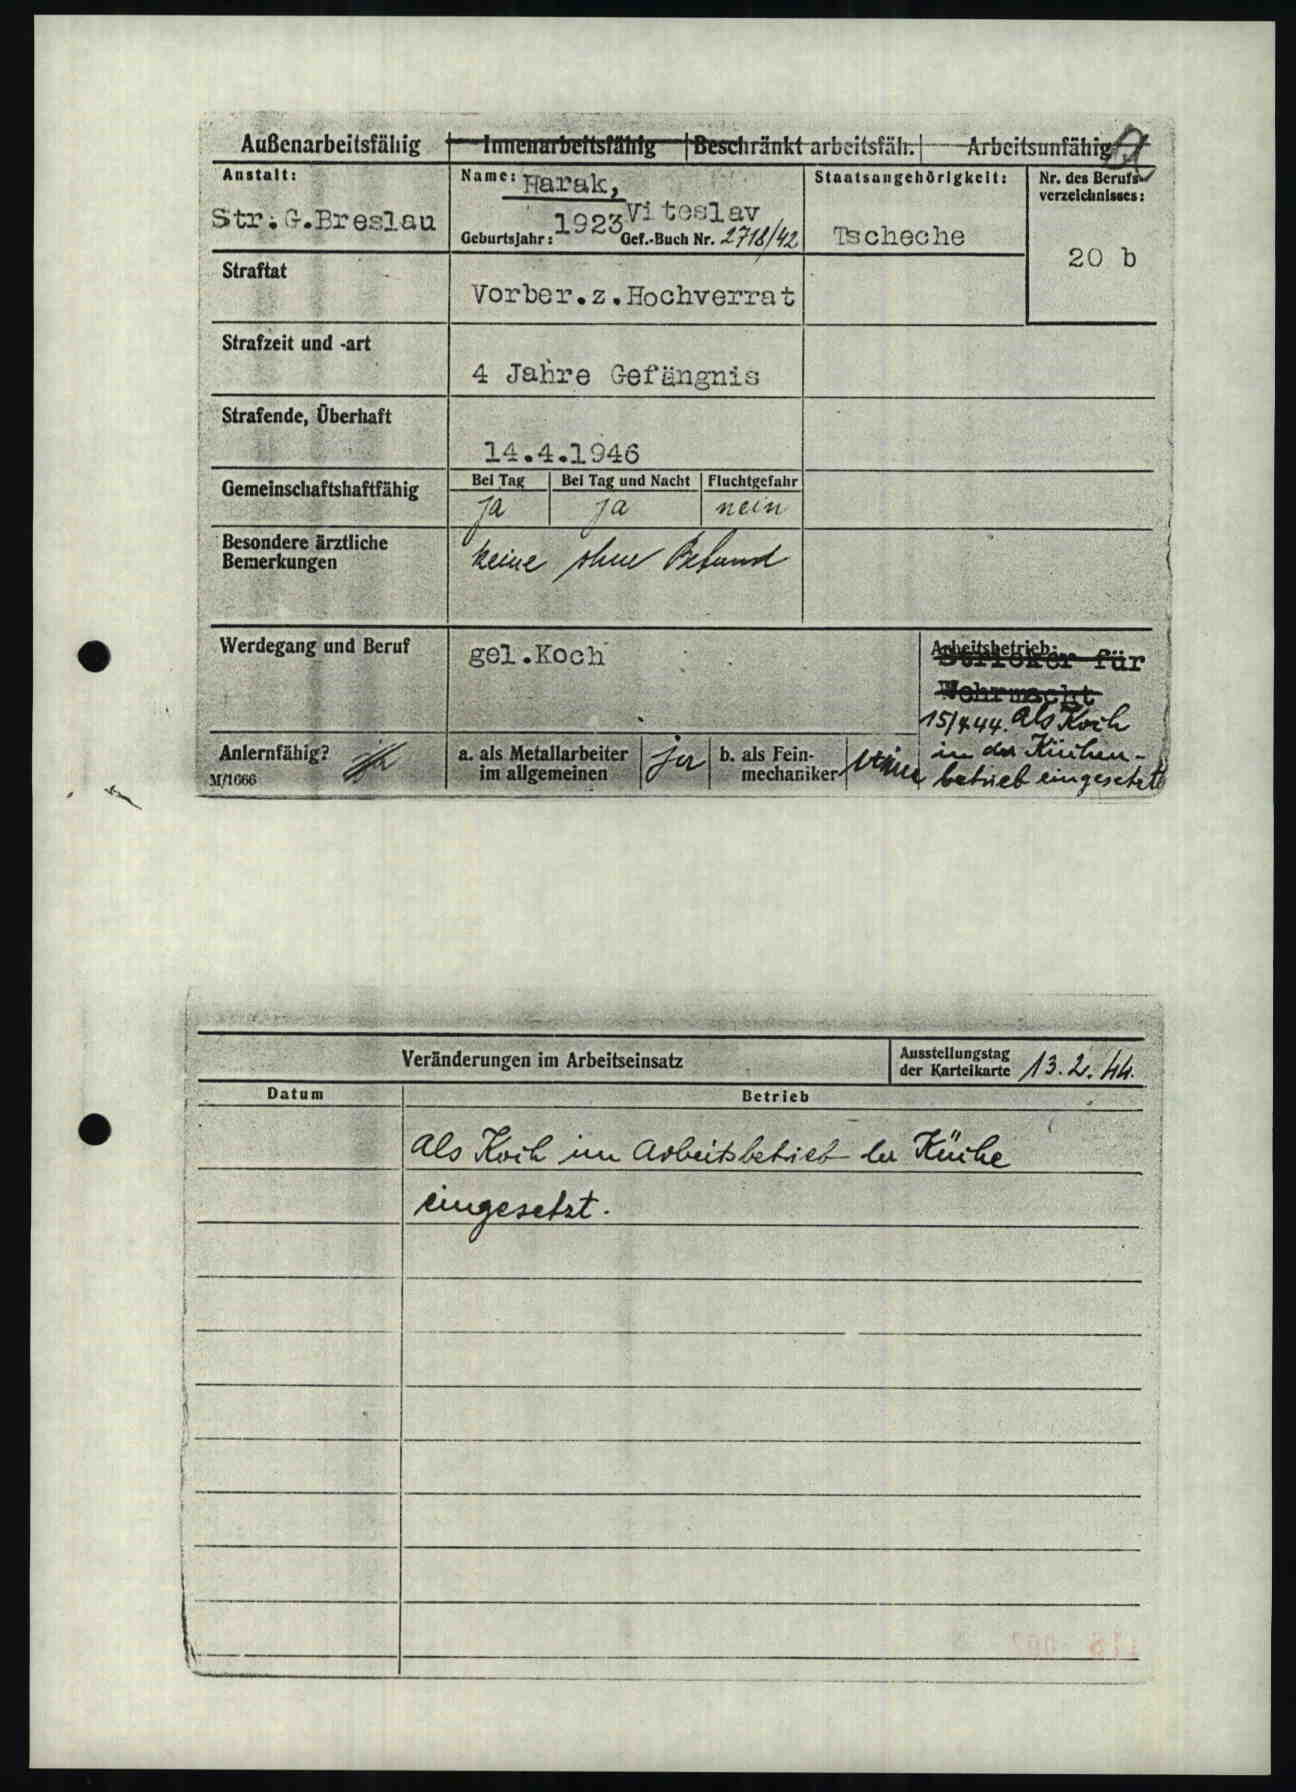 Außenarbeitsfähig Innenarbeitsfähig Beschränkt arbeitsfäh. Arbeitsunfähig
Anstalt: Name: Harak, Staatsangehörigkeit: Nr. des Berufs-
verzeichnisses:
Str.G.Breslau Viteslav
Geburtsjahr: 1923 Gef.-Buch Nr. 2718/42 Tscheche
20 b
Straftat
Vorber.z.Hochverrat
Strafzeit und -art
4 Jahre Gefängnis
Strafende, Überhaft
14.4.1946
Gemeinschaftshaftfähig Bei Tag Bei Tag und Nacht Fluchtgefahr
ja ja nein
Besondere ärztliche
Bemerkungen keine ohne Befund
Werdegang und Beruf gel.Koch Arbeitsbetrieb:
Stricker für
Wehrmacht
15/4.44. als Koch
in der Küchen-
betrieb eingesetzt
Anlernfähig? a. als Metallarbeiter
im allgemeinen ja b. als Fein-
mechaniker
M/1666
Veränderungen im Arbeitseinsatz Ausstellungstag
der Karteikarte 13.2.44.
Datum Betrieb
als Koch im Arbeitsbetrieb der Küche
eingesetzt.